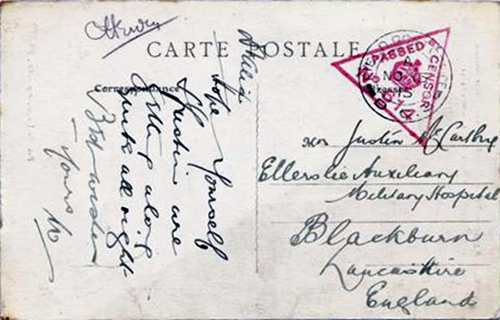 CARTE POSTALE
Correspondance
Hope yourself
& Justin are
getting along
quite all right
Best wishes
Yours
PASSED
CENSOR
Mrs Justin McCarthy
Ellerslie Auxiliary
Military Hospital
Blackburn
Lancashire
England